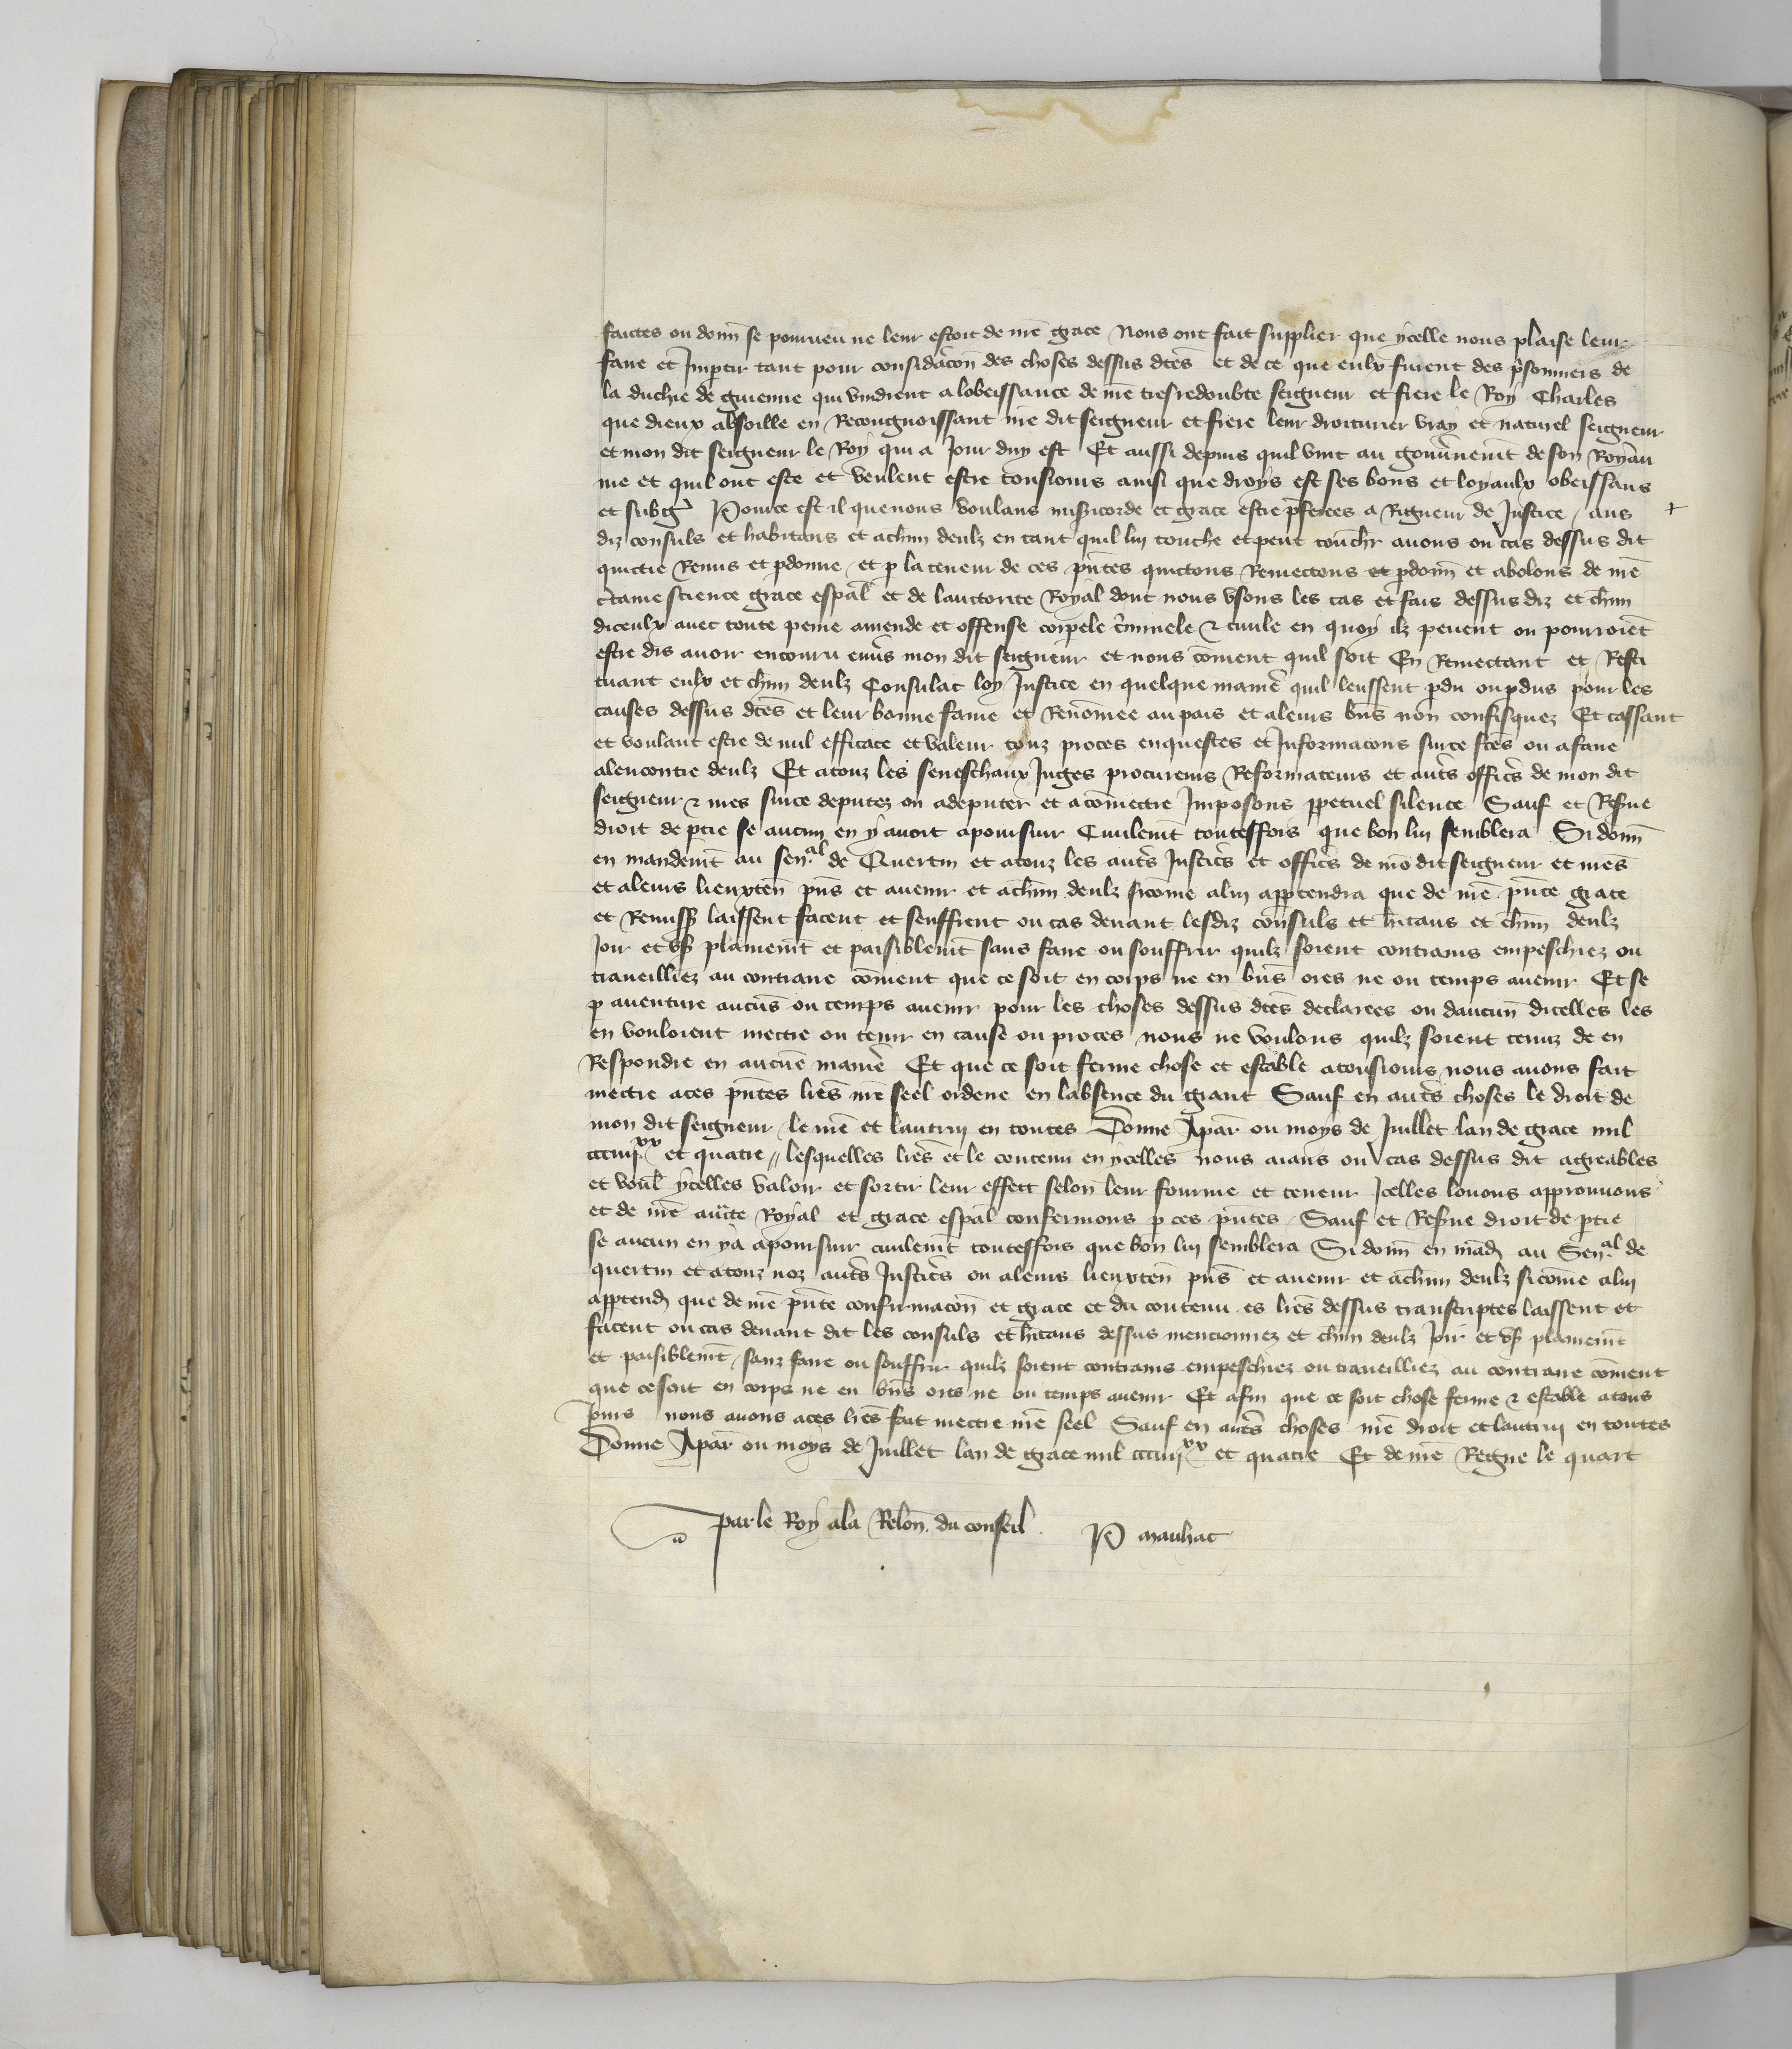 faictes ou donñ se pourueu ne leur estoit de nr̃e grace Nous ont fait supplier que ycelle nous plaise leur
faire et Impartir tant pour considãcon des choses dessus dc̃es et de ce que eulx furent des p̃sonniers de
la duchie de guienne qui vindrent a lobeissance de nr̃e tresredoubte seigneur et frere le Roy Charles
que dieux absoille en Recongnoissant nr̃e dit seigneur et frere leur droicturier vray et naturel seigneur
et mon dit seigneur le Roy qui a Jour duy est Et aussi depuis quil vint au gouũnemt̃ de son Royau
me et quil ont este et veulent estre tousiours ainsi que droys est ses bons et loyaulx obeissans
et subg̃ Pource est il que nous voulans mis̃icorde et grace estre p̃ferees a Rigueur de Justice aus
diz consuls et habitans et a chũn deulz en tant quil lui touche et peut touchr̃ auons ou cas dessus dit
quictie Remis et p̱donne et p̱ la teneur de ces pñtes quictons Remectons et p̱donñ et abolons de nr̃e
c̃taine science grace esp̃al et de lauctorite Royal dont nous vsons les cas et fais dessus diz et chũn
diceulx auec toute peine amende et offense corpele c̃minele & ciuile en quoy ilz peuent ou pourroiẽt
estre dis auoir encouru enũs mon dit seigneur et nous cõment quil soit En Remectant et Resti
tuant eulx et chũn deulz Consulat loy Justice en quelque manie᷑ quil leussent p̱du ou p̱dus pour les
causes dessus dc̃es et leur bonne fame et Renõmee au pais et a leurs biñs non confisquez Et cassant
et voulant estre de nul efficace et valeur touz proces enquestes et Informacõns sur ce fc̃es ou a faire
alencontre deulz Et a touz les seneschaux Juges procureurs Reformateurs et aut̃s offic̃s de mon dit
seigneur & mes sur ce deputez ou a deputer et a cõmectre Imposons p̱petuel silence Sauf et Res̃ue
droit de p̱tie se aucun en y auoit a poursuir Ciuilemt̃ toutesffois que bon lui semblera Si donñ
en mandemt̃ au Sen.al de Quercin et a touz les aut̃s Justic̃s et offic̃s de mõ dit seigneur et mes
et a leurs lieuxteñ pñs et auenir et a chũn deulz sicõme a lui app̱tendra que de nr̃e pñte grace
et Remiss̃ laissent facent et seuffrent ou cas deuant lesdiz consuls et hĩtans et chũn deulz
Joir et vs̃ plainemt̃ et paisiblemt̃ sans faire ou souffrir quilz soient contrains empeschiez ou
traueilliez au contraire cõment que ce soit en corps ne en biñs ores ne ou temps auenir Et se
p̱ auenture aucũs ou temps auenir pour les choses dessus dc̃es declarees ou daucuñ dicelles les
en vouloient mectre ou tenir en cause ou proces nous ne voulons quilz soient tenuz de en
Respondre en aucũe manie᷑ Et que ce soit ferme chose et estable a tousiours nous auons fait
mectre a ces pñtes lr̃es nr̃e seel ordene en labsence du grant Sauf en aut̃s choses le droit de
mon dit seigneur le nr̃e et lautruy en toutes Donne A par̃ ou moys de Juillet lan de grace mil
ccciiij.xx et quatre // lesquelles lr̃es et le contenu en ycelles nous aians ou cas dessus dit agreables
et voul̃ ycelles valoir et sortir leur effect selon leur fourme et teneur Icelles louons approuuons
et de nr̃e auc̃te Royal et grace esp̃al confermons p̱ ces pñtes Sauf et Res̃ue droit de p̱tie
se aucun en y a a poursuir ciuilemt̃ toutesffois que bon lui semblera Si donñ en mãd au Sen.al de
quercin et a touz noz aut̃s Justic̃s ou a leurs lieuxteñ pñs et auenir et a chũn deulz sicõme a lui
app̱tend que de nr̃e pñte confirmacõn et grace et du contenu es lr̃es dessus transcriptes laissent et
facent ou cas deuant dit les consuls et hĩtans dessus mencionnez et chũn deulz Joir et vs̃ plainemt̃
et paisiblemt̃ sanz faire ou souffrir quilz soient contrains empeschiez ou traueilliez au contraire cõment
que ce soit en corps ne en biñs ores ne ou temps auenir Et afin que ce soit chose ferme & estable a tous
Jours nous auons a ces lr̃es fait mectre nr̃e seel Sauf en aut̃s choses nr̃e droit et lautruy en toutes
Donne A par̃ ou moys de Juillet lan de grace mil ccciiij.xx et quatre Et de nr̃e Regne le quart
Par le Roy a la Relon̄. du conseil. P mauhac